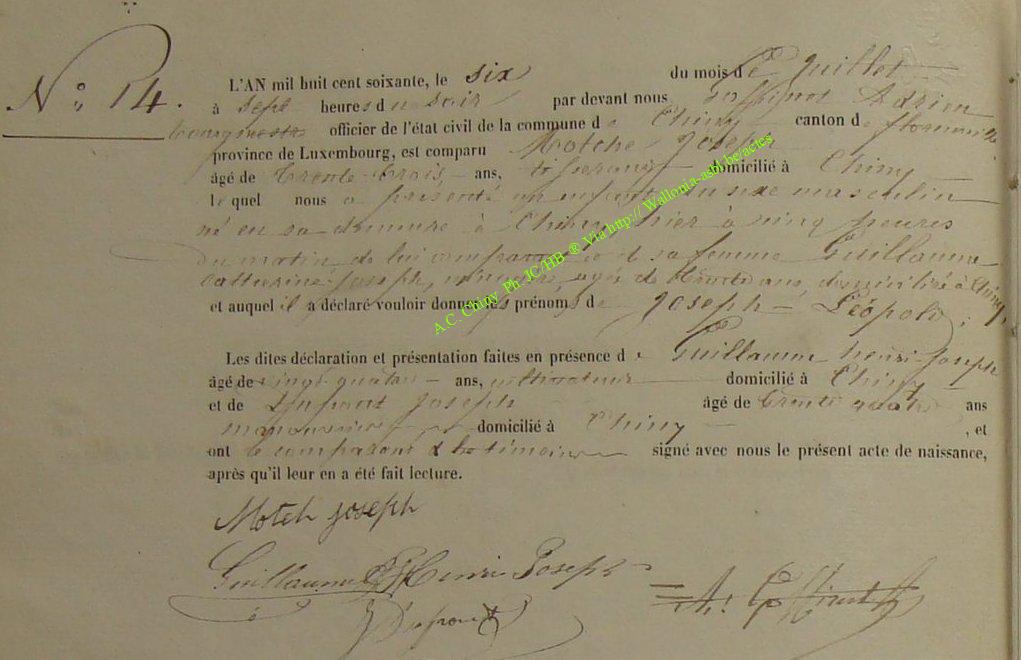 N° 14.
L'AN mil huit cent soixante, le six du mois de Juillet
à sept heures du soir par devant nous Adrien
bourgmestre officier de l'état civil de la commune de Chiny canton de florenville
province de Luxembourg, est comparu Motche Joseph
âgé de trente-trois ans, tisserand domicilié à Chiny
lequel nous a présenté un enfant du sexe masculin
né en sa demeure à Chiny hier à cinq heures
du matin de lui comparant et de sa femme Guillaume
Catherine Joseph, ménagère, agée de trente ans, domiciliée à Chiny,
et auquel il a déclaré vouloir donner les prénoms de Joseph - Léopold ;
Les dites déclaration et présentation faites en présence de Guillaume henri-Joseph
âgé de vingt quatre ans, cultivateur domicilié à Chiny
et de Dupont Joseph âgé de trente quatre ans
manouvrier domicilié à Chiny , et
ont le comparant & les témoins signé avec nous le présent acte de naissance,
après qu'il leur en a été fait lecture.
Motch joseph
Guillaume Henri Joseph
J Dupont
A.C. Chiny Ph. JC/HB ® Via http:// Wallonia-asbl.be/actes